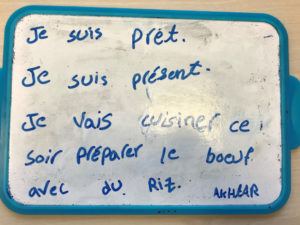 Je suis prêt.
Je suis présent.
Je vais cuisiner ce
soir préparer le boeuf
avec du Riz.